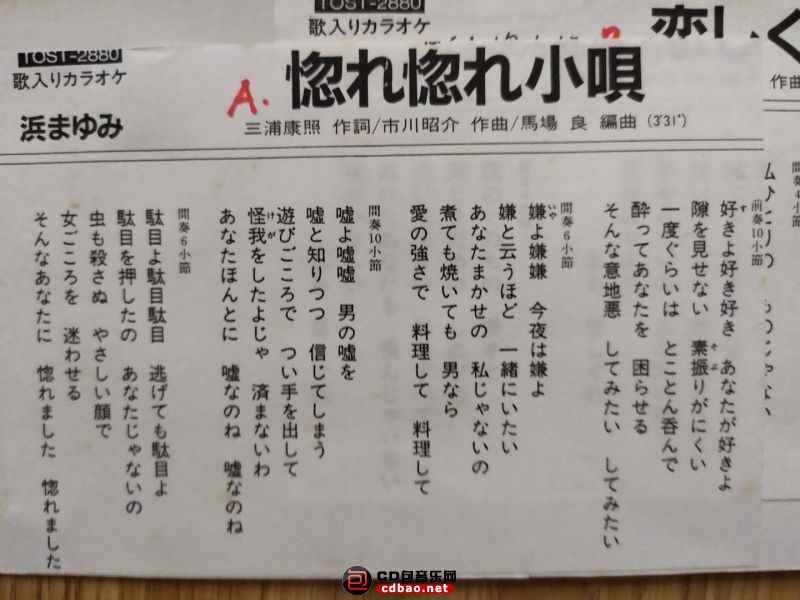 TOST-2880
歌入りカラオケ
TOST-2880
歌入りカラオケ
A.
惚れ惚れ小唄
浜まゆみ
三浦康照 作詞/市川昭介 作曲/馬場 良 編曲 (3'31")
作曲
前奏10小節
好きよ好き好き あなたが好きよ
隙を見せない 素振りがにくい
一度ぐらいは とことん呑んで
酔ってあなたを 困らせる
そんな意地悪 してみたい してみたい
間奏6小節
嫌よ嫌嫌 今夜は嫌よ
嫌と云うほど 一緒にいたい
あなたまかせの 私じゃないの
煮ても焼いても 男なら
愛の強さで 料理して 料理して
間奏10小節
嘘よ嘘嘘 男の嘘を
嘘と知りつつ 信じてしまう
遊びごころで つい手を出して
怪我をしたよじゃ 済まないわ
あなたほんとに 嘘なのね 嘘なのね
間奏6小節
駄目よ駄目駄目 逃げても駄目よ
駄目を押したの あなたじゃないの
虫も殺さぬ やさしい顔で
女ごころを 迷わせる
そんなあなたに 惚れました 惚れました
CD包音乐网
cdbao.net